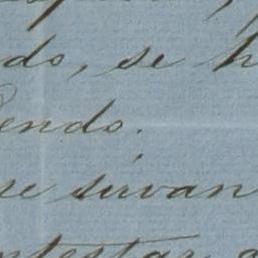 do, se h
endo.
re sirvan
ntestar a